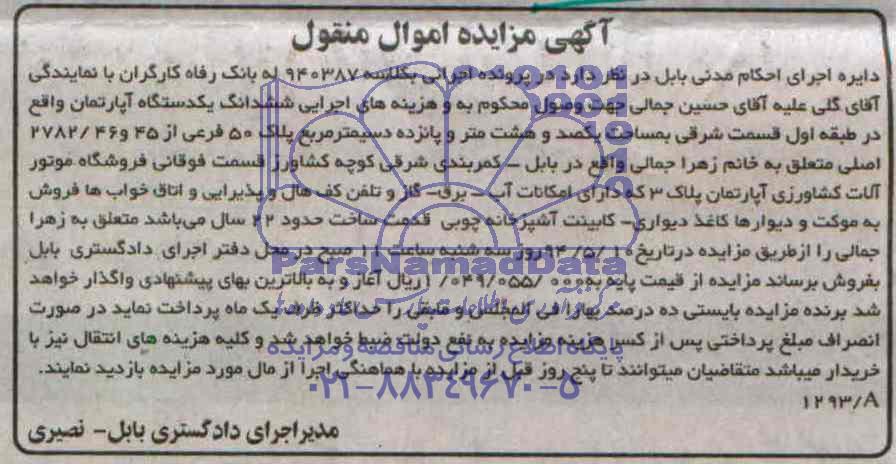 آگهی مزایده اموال منقول
دایره اجرای احکام مدنی بابل در نظر دارد در پرونده اجرائی بکلاسه ۹۴۰۳۸۷ له بانک رفاه کارگران با نمایندگی
آقای گلی علیه آقای حسین جمالی جهت وصول محکوم به و هزینه های اجرایی ششدانگ یکدستگاه آپارتمان واقع
در طبقه اول قسمت شرقی بمساحت یکصد و هشت متر و پانزده دسیمترمربع پلاک ۵۰ فرعی از ۴۵ و۴۶ /۲۷۸۲
اصلی متعلق به خانم زهرا جمالی واقع در بابل – کمربندی شرقی کوچه کشاورز قسمت فوقانی فروشگاه موتور
آلات کشاورزی آپارتمان پلاک ۳ که دارای امکانات آب – برق– گاز و تلفن کف هال و پذیرایی و اتاق خواب ها فروش
به موکت و دیوارها کاغذ دیواری– کابینت آشپزخانه چوبی قدمت ساخت حدود ۲۲ سال می‌باشد متعلق به زهرا
جمالی را ازطریق مزایده درتاریخ ۹۴/۵/ روز سه شنبه ساعت ۱۱ صبح در محل دفتر اجرای دادگستری بابل
بفروش برساند مزایده از قیمت پایه به ۰۰۰ /۰۵۵/ ۰۴۹/ ۱ ریال آغاز و به بالاترین بهای پیشنهادی واگذار خواهد
شد برنده مزایده بایستی ده درصد بهارا فی المجلس و مابقی را حداکثر ظرف یک ماه پرداخت نماید در صورت
انصراف مبلغ پرداختی پس از کسر هزینه مزایده به نفع دولت ضبط خواهد شد و کلیه هزینه های انتقال نیز با
خریدار میباشد متقاضیان میتوانند تا پنج روز قبل از مزایده با هماهنگی اجرا از مال مورد مزایده بازدید نمایند.
۱۲۹۳/A
مدیراجرای دادگستری بابل– نصیری
ParsNamadData
پایگاه اطلاع رسانی مناقصه و مزایده
۰۲۱-۸۸۳۴۹۶۷۰-۵